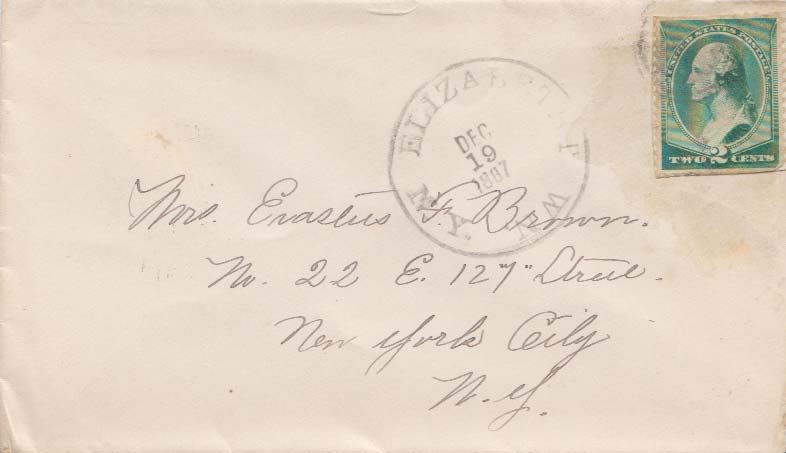 UNITED STATES POSTAGE
TWO 2 CENTS
ELIZABETHTOWN
N.Y.
DEC
19
1887
Mrs. Erastus F. Brown.
No. 22 E. 127" Street.
New York City
N.Y.